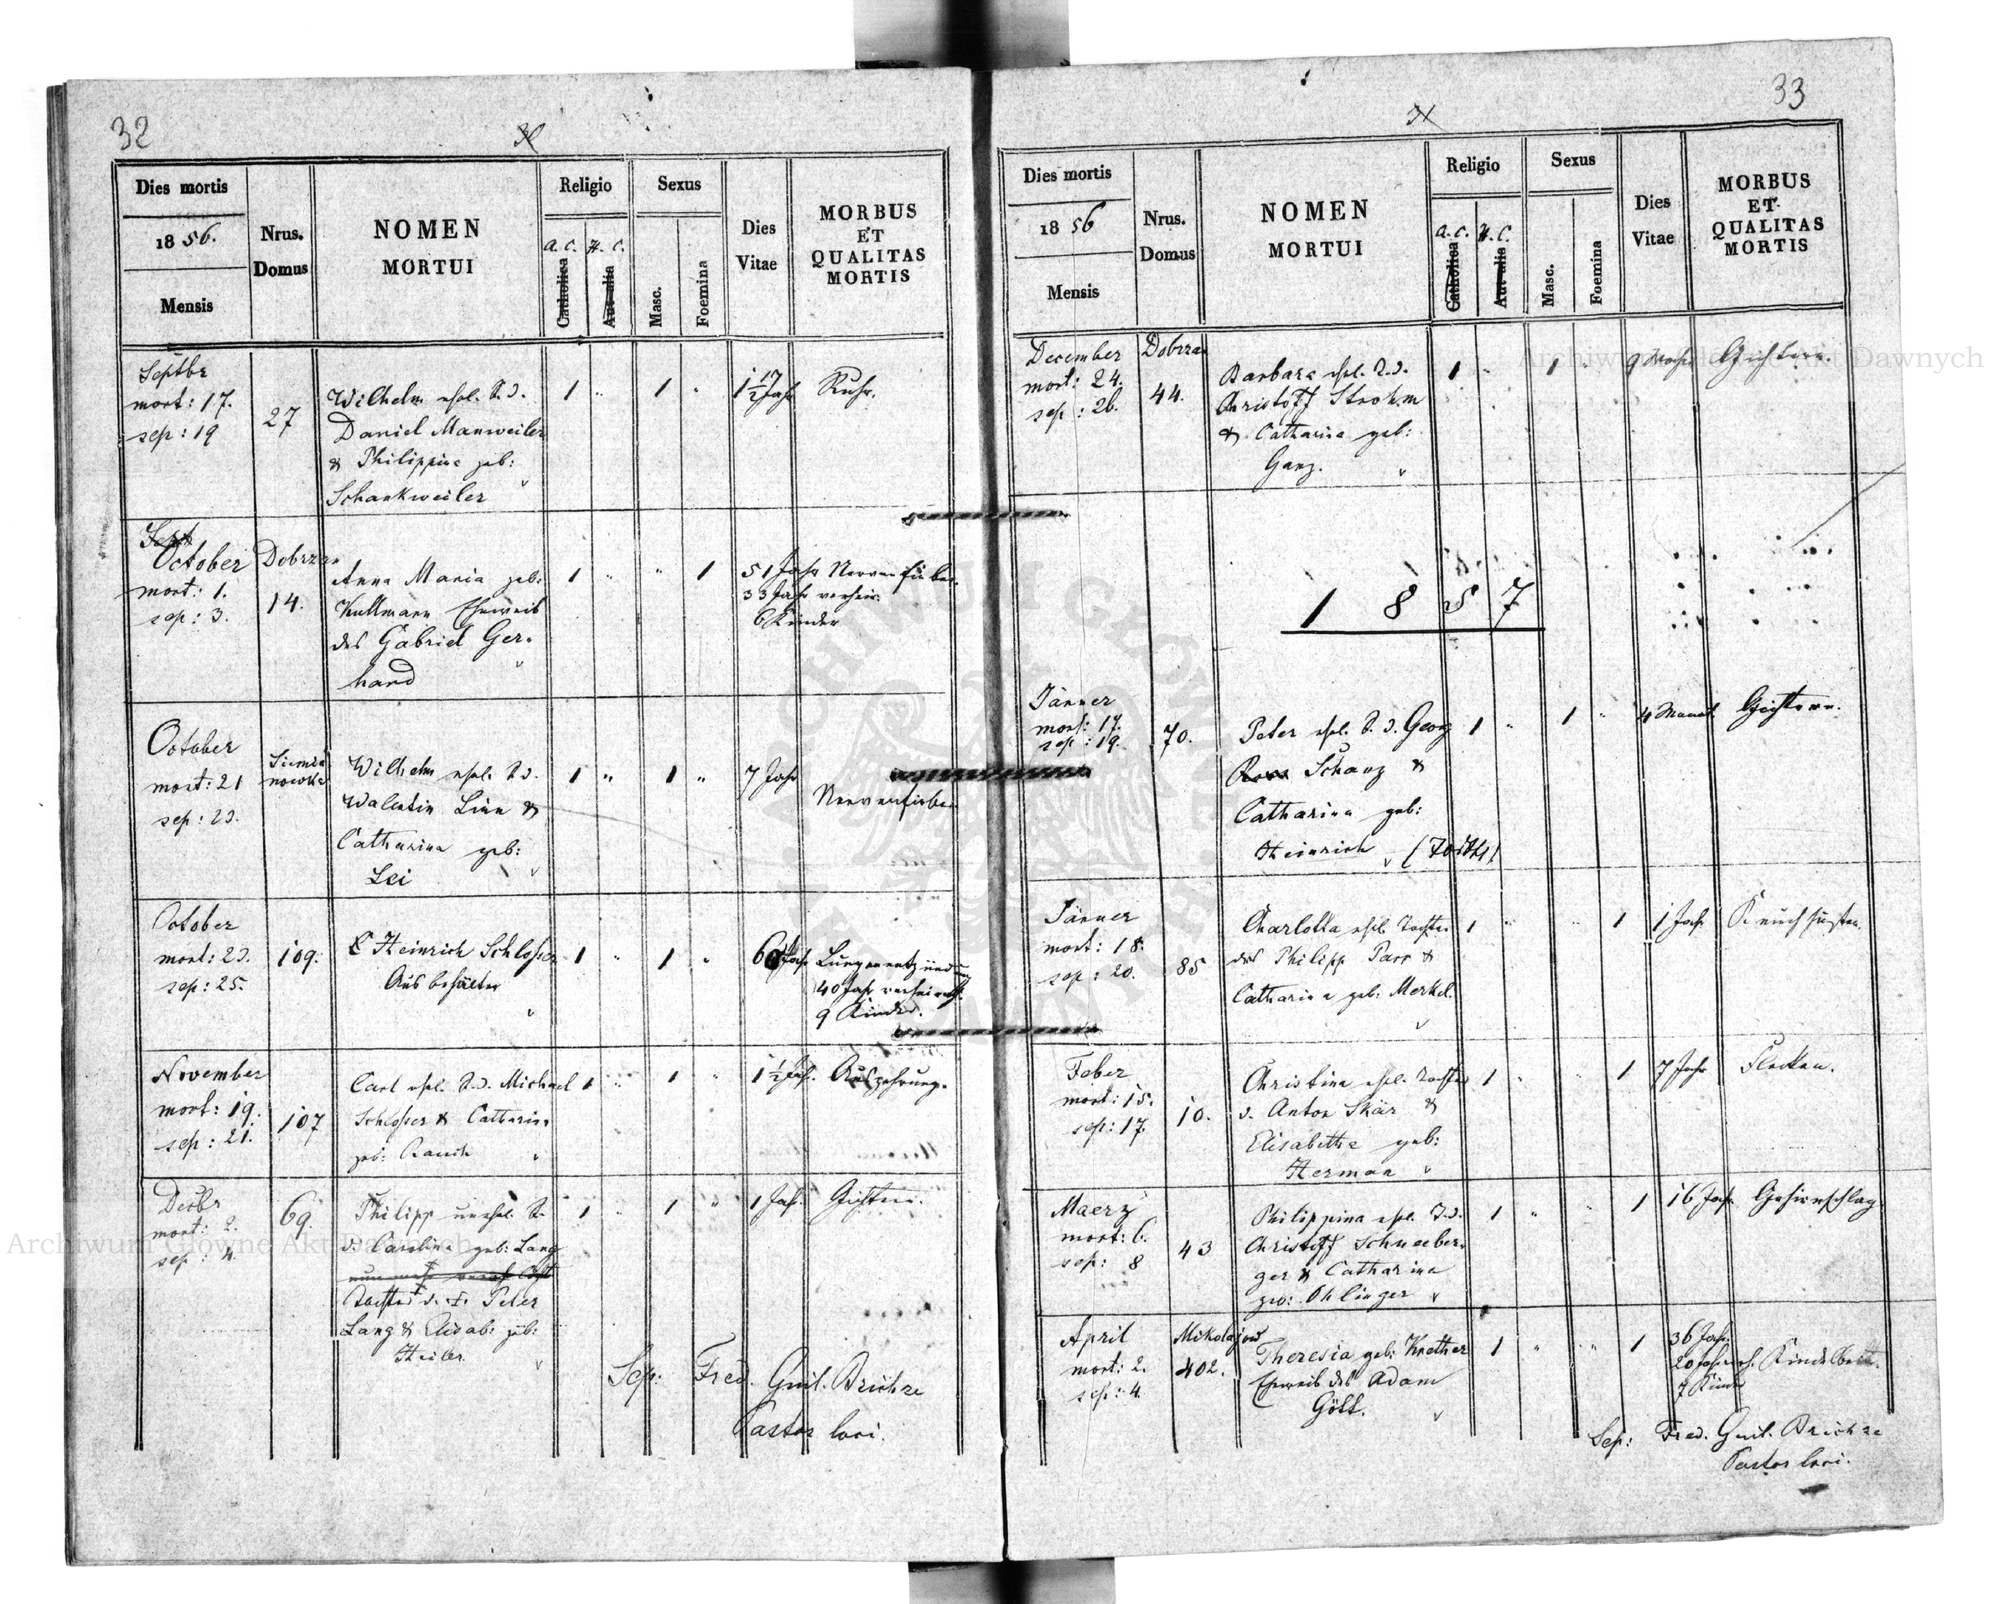 32
Dies mortis
1856.
Mensis
Nrus.
Domus
NOMEN
MORTUI
Religio
A. C.
H. C.
Catholica
Aut alia
Sexus
Masc.
Foemina
Dies
Vitae
MORBUS
ET
QUALITAS
MORTIS
Septbr
mort: 17.
sep: 19
27
Wilhelm ehel. S. d.
Daniel Manweiler
& Philippina geb:
Schankweiler
1 " 1 "
Jahr
Ruhr.
October
mort: 1.
sep: 3.
Dobrzan
14.
Anna Maria geb:
Kullmann Eheweib
des Gabriel Ger-
hard
1 " " 1
51 Jahr
33 Jahr verheir.
6 Kinder
Nervenfieber.
October
mort: 21
sep: 23.
Siemia
nowka
Wilhelm ehel. S. d.
Valentin Linn &
Catharina geb:
Lei
1 " 1 "
7 Jahr
Nervenfieber
October
mort: 23.
sep: 25.
109.
Heinrich Schlosser
1 " 1 "
Jahr
Lungenentzündung
40 Jahr verheirath.
9 Kinder.
November
mort: 19.
sep: 21.
107
Carl ehel. S. d. Michael
Schlosser & Catharina
geb: Rauch
1 " 1 "
1 1/2 Jah.
Auszehrung.
Decbr
mort: 2.
sep: 4.
69.
Philipp unehel. S.
d. Carolina geb: Lang
Tochter d. † Peter
Lang & Elisab: geb:
Heiler.
1 " 1 "
1 Jah.
Gichtern.
Sep: Fred. Guil. Brichze
Pastor loci.
33
Dies mortis
1856
Mensis
Nrus.
Domus
NOMEN
MORTUI
Religio
A. C.
H. C.
Catholica
Aut alia
Sexus
Masc.
Foemina
Dies
Vitae
MORBUS
ET
QUALITAS
MORTIS
December
mort: 24.
sep: 26.
Dobrzan
44.
Barbara ehel. T. d.
Christoff Strohm
& Catharina geb:
Ganz.
1 " 1 "
9 Woche
Gichtern.
1857
Jänner
mort: 17.
sep: 19.
70.
Peter ehel. S. d. Georg
Schanz &
Catharina geb:
Heinrich
1 " 1 "
4 Monat.
Gichtern.
Jänner
mort: 18.
sep: 20.
85
Charlotta ehel. Tochter
des Philipp Parr &
Catharina geb: Merkel.
1 " " 1
1 Jahr
Keuchhusten.
Feber
mort: 15.
sep: 17.
10.
Christina ehel. Tochter
d. Anton Skär &
Elisabetha geb:
Herman
1 " " 1
7 Jahr
Flecken.
Maerz
mort: 6.
sep: 8
43
Philippina ehel. T. d.
Christoff Schneeber-
ger & Catharina
geb: Ohlinger
1 " " 1
16 Jah.
Gehirnschlag
April
mort: 2.
sep: 4.
Mikolajow
402.
Theresia geb: Knether
Eheweib des Adam
Gött.
1 " " 1
36 Jah.
20 Jahr verh.
7 Kinder
Kindelbett.
Sep: Fred. Guil. Brichze
Pastor loci.
Archiwum Główne Akt Dawnych
Archiwum Główne Akt Dawnych
ARCHIWUM GŁÓWNE AKT DAWNYCH